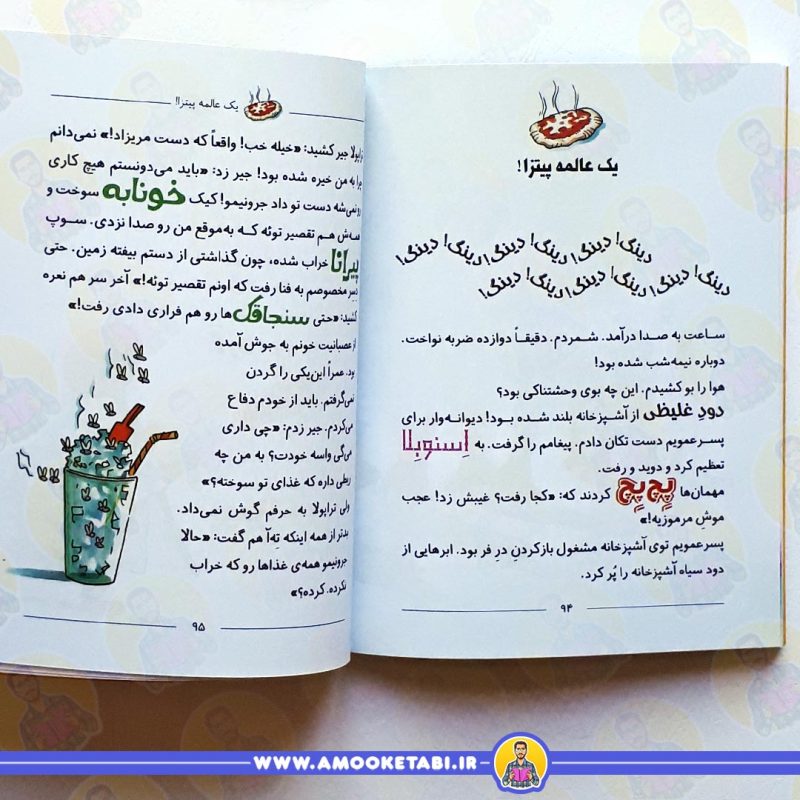 یک عالمه پیتزا!
دینگ! دینگ! دینگ! دینگ! دینگ! دینگ!
دینگ! دینگ! دینگ! دینگ! دینگ! دینگ!
ساعت به صدا درآمد. شمردم. دقیقاً دوازده ضربه نواخت.
دوباره نیمه‌شب شده بود!
هوا را بو کشیدم. این چه بوی وحشتناکی بود؟
دودِ غلیظی از آشپزخانه بلند شده بود! دیوانه‌وار برای
پسرعمویم دست تکان دادم. پیغامم را گرفت. به اِسنوبِلا
تعظیم کرد و دوید و رفت.
مهمان‌ها پِچ‌پِچ کردند که: «کجا رفت؟ غیبش زد! عجب
موشِ مرموزیه!»
پسرعمویم توی آشپزخانه مشغول بازکردنِ درِ فر بود. ابرهایی از
دود سیاه آشپزخانه را پُر کرد.
۹۴
یک عالمه پیتزا!
تراپولا جیر کشید: «خیله خب! واقعاً که دست مریزاد!» نمی‌دانم
چرا به من خیره شده بود! جیر زد: «باید می‌دونستم هیچ کاری
رو نمی‌شه دست تو داد جرونیمو! کیک خونابه سوخت و
همه‌ش هم تقصیر توئه که به‌موقع من رو صدا نزدی. سوپ
پیرانا خراب شده، چون گذاشتی از دستم بیفته زمین. حتی
دسر مخصوصم به فنا رفت که اونم تقصیر توئه!» آخر سر هم نعره
کشید: «حتی سنجاقک‌ها رو هم فراری دادی رفت!»
از عصبانیت خونم به جوش آمده
بود. عمراً این‌یکی را گردن
نمی‌گرفتم. باید از خودم دفاع
می‌کردم. جیر زدم: «چی داری
می‌گی واسه خودت؟ به من چه
ربطی داره که غذای تو سوخته؟»
ولی تراپولا به حرفم گوش نمی‌داد.
بدتر از همه اینکه تِه‌آ هم گفت: «حالا
جرونیمو همه‌ی غذاها رو که خراب
نکرده. کرده؟»
۹۵
WWW.AMOOKETABI.IR